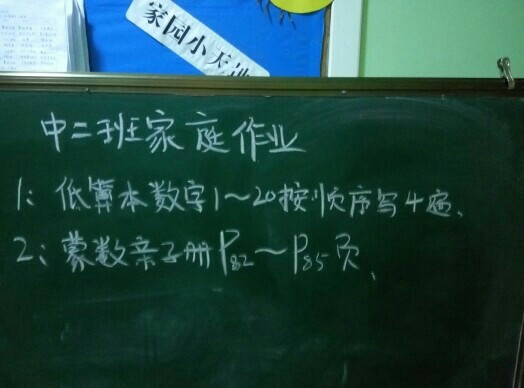 家园小天地
中二班家庭作业
1: 低算本数字1～20按顺序写4遍、
2: 蒙数亲子册P82～P85页、